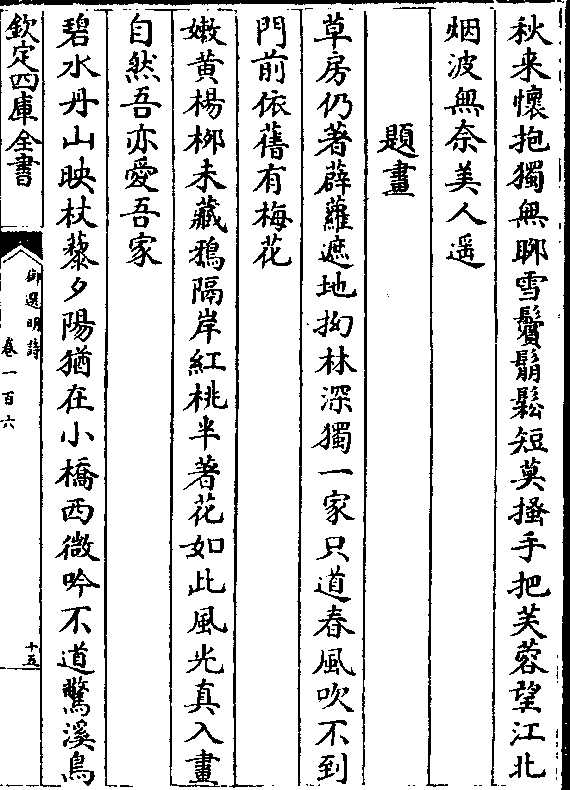 秋来懷抱獨無聊雪鬢鬅鬆短莫搔手把芙蓉望江北
烟波無奈美人遥
題畫
草房仍著薜蘿遮地拗林深獨一家只道春風吹不到
門前依舊有梅花
嫩黄楊柳未藏鴉隔岸紅桃半著花如此風光真入畫
自然吾亦愛吾家
碧水丹山映杖藜夕陽猶在小橋西微吟不道驚溪鳥
欽定四庫全書
御選明詩
卷一百六
十五